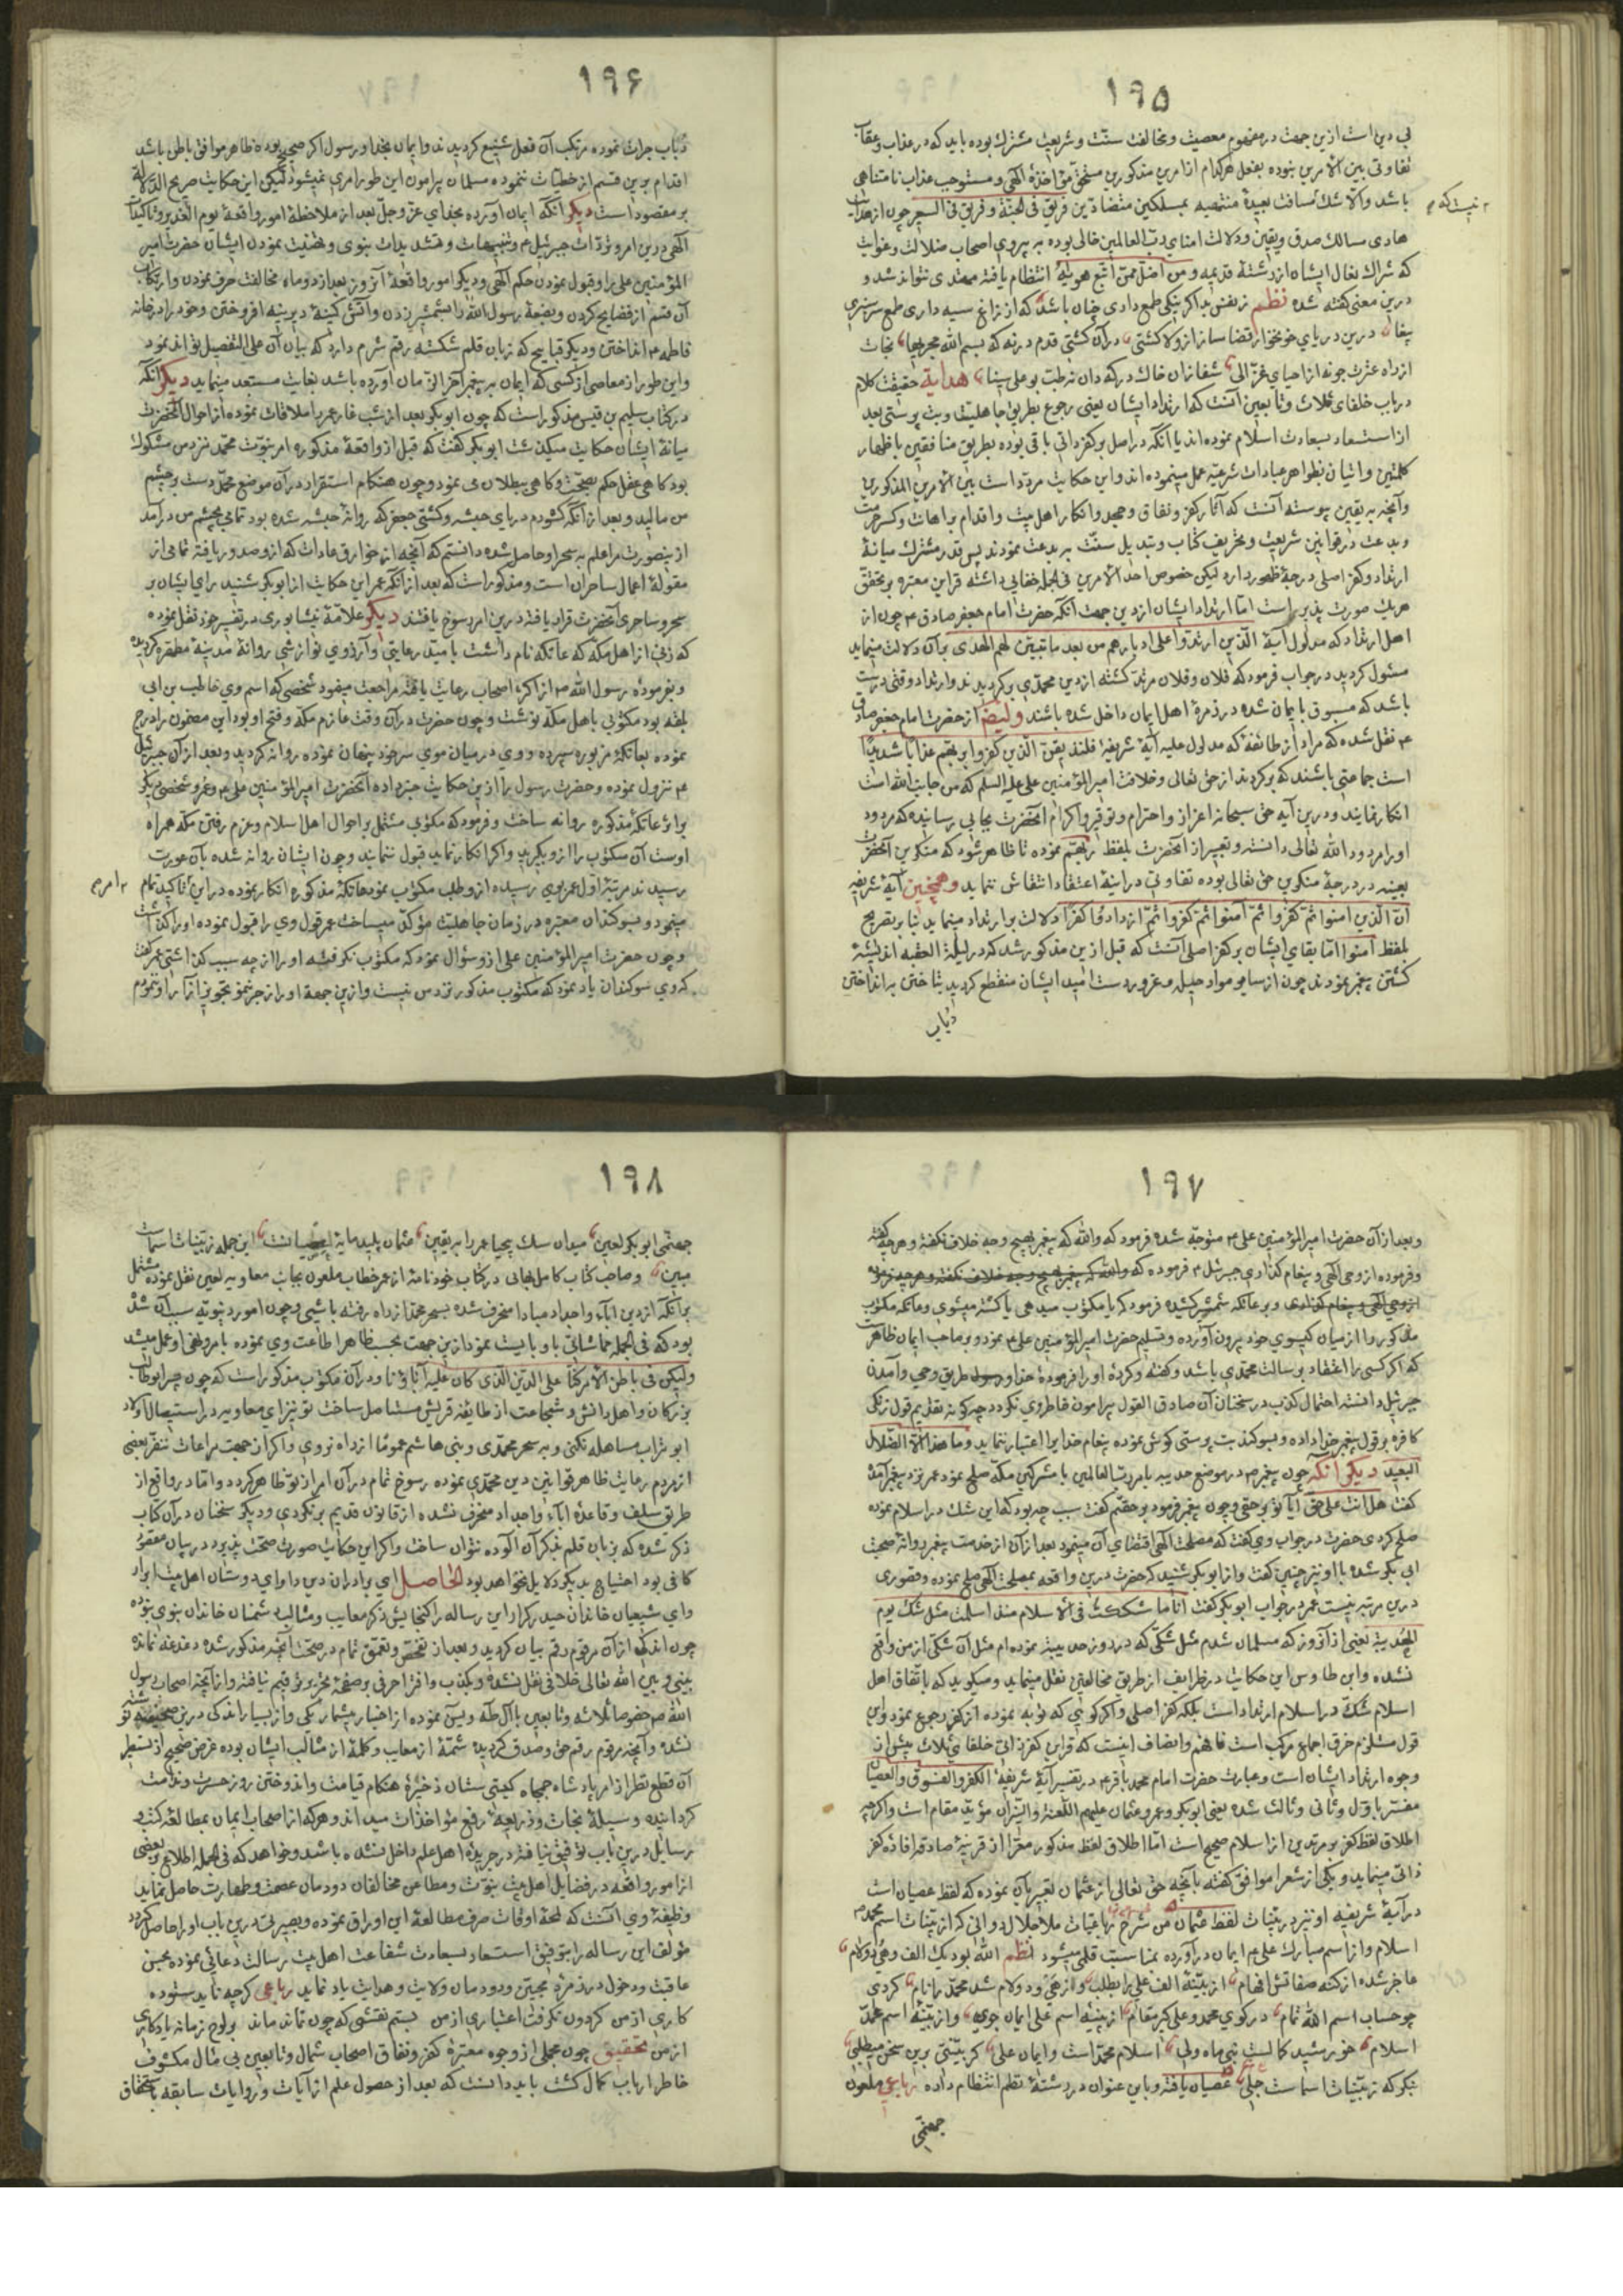 ۱۹۵
بی دین است ازین جهت در مفهوم معصیت و مخالفت سنّت و شریعت مشترک بوده باید که در عذاب و عقاب
تفاوتی بین الامرین نبوده بفعل هرکدام ازامرین مذکورین مستحقّ مؤاخذهٔ الهی و مستوجب عذاب نامتناهی
باشد والّا شک مسافت بعیدهٔ منتهیه بمسلکین متضادّین فریق فی الجنّة و فریق فی السعیر چون از
هادی مسالک صدق و یقین و دلالت امنای ربّ العالمین خالی بوده به پیروی اصحاب ضلالت و غوایت
که شراک نعال ایشان از رشتهٔ قدیمه و من اضلّ ممّن اتّبع هویه انتظام یافته مهتدی نتواند شد و
درین معنی گفته شده نظم ز نفس بد اگر نیکی طمع داری چنان باشد که از زاغ سیه داری طمع
درین دریای خونخوار قضا ساز از ولا کشتی در آن کشتی قدم در نه که بسم الله مجریها نجات
هدایة حقیقت کلام
در باب خلفای ثلاث و تابعین آنست که ارتداد ایشان یعنی رجوع بطریق جاهلیت و بت پرستی بعد
از استسعاد بسعادت اسلام نموده اند یا آنکه در اصل بر کفر ذاتی باقی بوده بطریق منافقین باظهار
کلمتین و اتیان بظواهر عبادات شرعیه عمل مینموده اند و این حکایت مردّد است بین الامرین المذکورین
وآنچه به یقین پیوسته آنست که آثار کفر و نفاق و جحد و انکار اهل بیت و اقدام بر اهانت و کسر حرمت
و بدعت در قوانین شریعت و تحریف کتاب و تبدیل سنّت به بدعت نمودند پس قدر مشترک میانهٔ
ارتداد و کفر اصلی درجهٔ ظهور دارد لیکن خصوص احد الامرین فی الجمله خفایی داشته قراین معتبره بر تحقّق
هریک صورت پذیر است امّا ارتداد ایشان ازین جهت آنکه حضرت امام جعفر صادق ع م چون از
اهل ارتداد که مدلول آیهٔ الّذین ارتدّوا علی ادبارهم من بعد ما تبیّن لهم الهدی بر آن دلالت مینماید
مسئول گردید در جواب فرمود که فلان و فلان مرتدّ گشته از دین محمّدی برگردیدند و ارتداد وقتی درست
باشد که مسبوق بایمان شده در زمرهٔ اهل ایمان داخل شده باشند و ایضاً از حضرت امام جعفر صادق
ع م نقل شده که مراد از طائفهٔ که مدلول علیه آیهٔ شریفهٔ فلنذیقنّ الّذین کفروا بربّهم عذاباً شدیداً
است جماعتی باشند که برگردند از حق تعالی و خلافت امیر المؤمنین علی علیه السلم که من جانب الله است
انکار نمایند و درین آیه حق سبحانه اعزاز و احترام و توقیر و اکرام آنحضرت بجایی رسانیده که مردود
او را مردود الله تعالی دانسته و تعبیر از آنحضرت بلفظ ربّهم نموده تا ظاهر شود که منکرین آنحضرت
بعینه در درجهٔ منکرین حق تعالی بوده تفاوتی در اینهٔ اعتقاد انتقاش ننماید و همچنین آیهٔ شریفه
انّ الّذین امنوا ثمّ کفروا ثمّ آمنوا ثمّ کفروا ثمّ ازدادوا کفراً دلالت بر ارتداد مینماید بنابر تصریح
بلفظ آمنوا امّا بقای ایشان بر کفر اصلی آنست که قبل ازین مذکور شد که در لیلة العقبه اندیشهٔ
کشتن پیغمبر نمودند چون از سایر مواد حیله و غرور دست امید ایشان منقطع گردید بتاختن به انداختن
دباب
۱۹۶
دباب جرات نموده مرتکب آن فعل شنیع گردیدند و ایمان بخدا و رسول اگر صحیح بوده ظاهر موافق باطن باشد
اقدام برین قسم از خطیّات ننموده مسلمان پیرامون این طور امری نمیشود لیکن این حکایت صریح الدّلالة
بر مقصود است دیگر آنکه ایمان آورده بخدای عزّ و جلّ بعد از ملاحظهٔ امور واقعهٔ یوم الغدیر و تاکیدات
الهی درین امر و تردّدات جبرئیل ع م و تنبیهات و تشدیدات نبوی و تهنیت نمودن ایشان حضرت امیر
المؤمنین علی را و قبول نمودن حکم الهی و دیگر امور واقعهٔ آنروز بعد از دو ماه مخالفت حرف نمودن و ارتکاب
آن قسم از فضایح کردن و بضعهٔ رسول الله را شمشیر زدن و آتش کینهٔ دیرینه افروختن و خود را در خانه
فاطمه ع م انداختن و دیگر قبایح که زبان قلم شکسته رقم شرم دارد که بیان آن علی التفصیل تواند نمود
و این طور از معاصی از کسی که ایمان به پیغمبر آخر الزّمان آورده باشد بغایت مستبعد مینماید دیگر آنکه
در کتاب سلیم بن قیس مذکور است که چون ابوبکر بعد از شب غار عمر را ملاقات نموده از احوال آنحضرت
میانهٔ ایشان حکایت میگذشت ابوبکر گفت که قبل از واقعهٔ مذکوره امر نبوّت محمّد نزد من مشکوک
بود کاهی عقل حکم بصحّت و کاهی ببطلان می نمود و چون هنگام استقرار در آن موضع محمّد دست بر چشم
من مالید و بعد از آنکه گشودم دریای حبشه و کشتی جعفر که روانهٔ حبشه شده بود تمامی بچشم من درآمد
ازینصورت مرا علم به سحر او حاصل شده دانستم که آنچه از خوارق عادات که از او صدور یافته تمامی از
مقولهٔ اعمال ساحران است و مذکور است که بعد از آنکه عمر این حکایت از ابوبکر شنید رای ایشان بر
سحر و ساحری آنحضرت قرار یافته درین امر رسوخ یافتند دیگر علّامهٔ نیشابوری در تفسیر خود نقل نموده
که زنی از اهل مکه که عاتکه نام داشت بامید رعایتی و آرزوی نوازشی روانهٔ مدینهٔ مطهّره گردیده
و بفرمودهٔ رسول الله ص م از اکثر اصحاب رعایت یافته مراجعت مینمود شخصی که اسم وی حاطب بن ابی
بلتعه بود مکتوبی باهل مکّه نوشت و چون حضرت در آن وقت عازم مکّه و فتح او بود این مضمون را درج
نموده بعاتکهٔ مزبوره سپرده و وی در میان موی سر خود پنهان نموده روانه گردید و بعد از آن جبرئیل
ع م نزول نموده و حضرت رسول را ازین حکایت خبر داده آنحضرت امیر المؤمنین علی ع م و عمر و شخصی دیگر
بر اثر عاتکهٔ مذکوره روانه ساخت و فرمود که مکتوبی مشتمل بر احوال اهل اسلام و عزم رفتن مکّه همراه
اوست آن مکتوب را از او بگیرید و اگر انکار نماید قبول ننمایید و چون ایشان روانه شده بآن عورت
رسیدند مرتبهٔ اوّل عمر بوی رسیده از او طلب مکتوب نمود عاتکهٔ مذکوره انکار نموده در این تاکید تمام
مینمود و بسوگندان معتبره در زمان جاهلیت مؤکّد میساخت عمر قول وی را قبول نموده او را گذاشت
و چون حضرت امیر المؤمنین علی ازو سؤال نمود که مکتوب نگرفته او را از چه سبب گذاشتی عمر گفت
که وی سوگندان یاد نمود که مکتوب مذکور نزد من نیست و ازین جهة او را
۱۹۷
و بعد از آن حضرت امیر المؤمنین علی ع م متوجّه شده فرمود که والله که پیغمبر بهیچ وجه خلاف نگفته و هرچه گفته
و فرموده از وحی الهی و پیغام گذاری جبرئیل ع م فرموده که والله که پیغمبر بهیچ وجه خلاف نگفته و هرچه فرموده
از وحی الهی و پیغام گذاری و بر عاتکه شمشیر کشیده فرمود که یا مکتوب میدهی یا کشته میشوی و عاتکه مکتوب
مذکور را از میان گیسوی خود بیرون آورده و تسلیم حضرت امیر المؤمنین علی ع م نمود و بر صاحب ایمان ظاهر است
که اگر کسی را اعتقاد برسالت محمّدی باشد و گفته و کردهٔ او را فرمودهٔ خدا و رسول طریق وحی و آمدن
جبرئیل دانسته احتمال کذب در سخنان آن صادق القول پیرامون خاطر وی نگردد چگونه تقدیم قول زنکی
کافره بر قول پیغمبر خدا داده و بسوگند بت پرستی گوش نموده پیغام خدا را اعتبار ننماید و ما هذا الّا الضّلال
البعید دیگر آنکه چون پیغمبر ص م در موضع حدیبیه بامر ربّ العالمین با مشرکین مکّه صلح نمود عمر نزد پیغمبر آمده
گفت هل انت علی حقّ آیا تو بر حقّی و چون پیغمبر فرمود بر حقّم گفت سبب چه بود که این شک در اسلام نموده
صلح کردی حضرت در جواب وی گفت که مصلحت الهی اقتضای آن مینمود بعد از آن از خدمت پیغمبر روانهٔ صحبت
ابی بکر شده با او نیز چنین گفت و از ابوبکر شنید که حضرت درین واقعه بمصلحت الهی صلح نموده و قصوری
درین مرتبه نیست عمر در جواب ابوبکر گفت انا ما شککت فی الاسلام منذ اسلمت مثل شکّ یوم
الحدیبیّه یعنی از آنروز که مسلمان شدم مثل شکّی که در روز حدیبیّه نموده ام مثل آن شکّی از من واقع
نشده و ابن طاوس این حکایت در طرایف از طریق مخالفین نقل مینماید و میگوید که باتّفاق اهل
اسلام شکّ در اسلام ارتداد است بلکه کفر اصلی و اگر گویی که توبه نموده از کفر رجوع نمود و این
قول مستلزم خرق اجماع مرکّب است فافهم و انصاف اینست که قراین کفر ذاتی خلفای ثلاث بیش از
وجوه ارتداد ایشان است و عبارت حضرت امام محمد باقر ع م در تفسیر آیهٔ شریفهٔ الکفر و الفسوق و العصیان
مفسّر باوّل و ثانی و ثالث شده یعنی ابوبکر و عمر و عثمان علیهم اللّعنة و النّیران مؤیّد مقام است و اگرچه
اطلاق لفظ کفر بر مرتدین از اسلام صحیح است امّا اطلاق لفظ مذکور معرّا از قرینهٔ صادقه افادهٔ کفر
ذاتی مینماید و یکی از شعرا موافق گفته بآنچه حق تعالی از عثمان تعبیر بآن نموده که لفظ عصیان است
در آیهٔ شریفه او نیز در بیّنات لفظ عثمان من شرح رباعیّات ملّا جلال دوانی که از بیّنات اسم محمد ص م
اسلام و از اسم مبارک علی ع م ایمان در آورده بمناسبت قلمی میشود نظم الله بود یک الف و هی و دو لام
عاجز شده از کنه صفاتش افهام از بیّنهٔ الف علی را بطلب وز هی و دو لام شد محمّد را نام کردی
چو حساب اسم الله تمام در کوی محمد و علی گیر مقام از بیّنهٔ اسم علی ایمان جوی و از بیّنهٔ اسم محمّد
اسلام خورشید کمالست نبی ماه ولی اسلام محمّد است و ایمان علی گر بیّنتی برین سخن میطلبی
بنگر که ز بیّنات اسماست جلی عصیان یافته و باین عنوان در رشتهٔ نظم انتظام داده رباعی ملعون
جهنّمی
۱۹۸
جهنّمی ابوبکر لعین میدان سگ بیحیا عمر را به یقین عثمان پلید مایهٔ عصیانست این جمله ز بیّنات اسماست
مبین و صاحب کتاب کامل بهائی در کتاب خود نامهٔ از عمر خطاب ملعون بجانب معاویه لعین نقل نموده مشتمل
بر آنکه از دین اباء و اجداد مبادا منحرف شده بسحر محمّد از راه رفته باشی و چون امورد نبویّه سبب آن شد
بود که فی الجمله مماشاتی با او بایست نمود ازین جهت بحسب ظاهر اطاعت وی نموده بامر و نهی او عمل میشد
ولیکن فی باطن الامر کنّا علی الدّین الّذی کان علیه آباؤنا و در آن مکتوب مذکور است که چون پسر ابوطالب
بزرگان و اهل دانش و شجاعت از طایفهٔ قریش مستاصل ساخت تو نیز ای معاویه در استیصال اولاد
ابو تراب مساهله نکنی و به سحر محمّدی و بنی هاشم عموماً از راه نروی و اگر از جهت مراعات تنفّر بعضی
از مردم رعایت ظاهر قوانین دین محمّدی نموده رسوخ تمام در آن امر از تو ظاهر گردد و امّا در واقع از
طریق سلف و قاعدهٔ اباء و اجداد منحرف نشده از قانون قدیم برنگردی و دیگر سخنان در آن کتاب
ذکر شده که بزبان قلم بذکر آن آلوده نتوان ساخت و اگر این حکایت صورت صحّت پذیرد در بیان مقصود
کافی بود احتیاج بدیگر دلایل نخواهد بود الحاصل ای برادران دین دار و ای دوستان اهل بیت ابرار
و ای شیعیان خاندان حیدر کرّار این رساله را گنجایش ذکر معایب و مثالب دشمنان خاندان نبوی نبوده
چون اندکی از آن مرقوم رقم بیان گردید و بعد از تفحّص و تعمّق تمام در صحّت آنچه مذکور شده دغدغه نمانده
بینی و بین الله تعالی خلافی نقل نشده و بکذب و افترا حرفی بر صفحهٔ تحریر ترقیم نیافته و از آنچه اصحاب رسول
الله ص م خصوصا ثلاثه و تابعین با آل طٰه و یسٓ نموده از اخبار بیشمار یکی و از بسیار اندکی درین صحیفه نوشته
نشده و آنچه مرقوم رقم حق و صدق گردیده شمّهٔ از معایب و کلمهٔ از مثالب ایشان بوده غرض صحیح از تسطیر
آن قطع نظر از امر پادشاه جمجاه گیتی ستان ذخیرهٔ هنگام قیامت و اندوختن روز حسرت و ندامت
گردانیده وسیلهٔ نجات و ذریعهٔ رفع مؤاخذات میداند و هرکه از اصحاب ایمان بمطالعهٔ کتب و
رسایل درین باب توفیق نیافته در جریدهٔ اهل علم داخل نشده باشد و خواهد که فی الجمله اطلاع بر بعضی
از امور واقعه در فضایل اهل بیت نبوّت و مطاعن مخالفان دودمان عصمت و طهارت حاصل نماید
وظیفهٔ وی آنست که لمحهٔ اوقات صرف مطالعهٔ این اوراق نموده و بصیرتی درین باب او را حاصل گردد
مؤلف این رساله را بتوفیق استسعاد بسعادت شفاعت اهل بیت رسالت دعائی نموده بحسن
عاقبت و دخول در زمرهٔ محبّین دودمان ولایت و هدایت یاد نماید رباعی گرچه ناید ستوده
کاری از من گردون نگرفت اعتباری از من بستم نقشی که چون نماند ماند بر لوح زمانه یادگاری
از من تحقیق چون مجملی از وجوه معتبرهٔ کفر و نفاق اصحاب شمال و تابعین بی مثال مکشوف
خاطر ارباب کمال گشت باید دانست که بعد از حصول علم از آیات و روایات سابقه باستحقاق